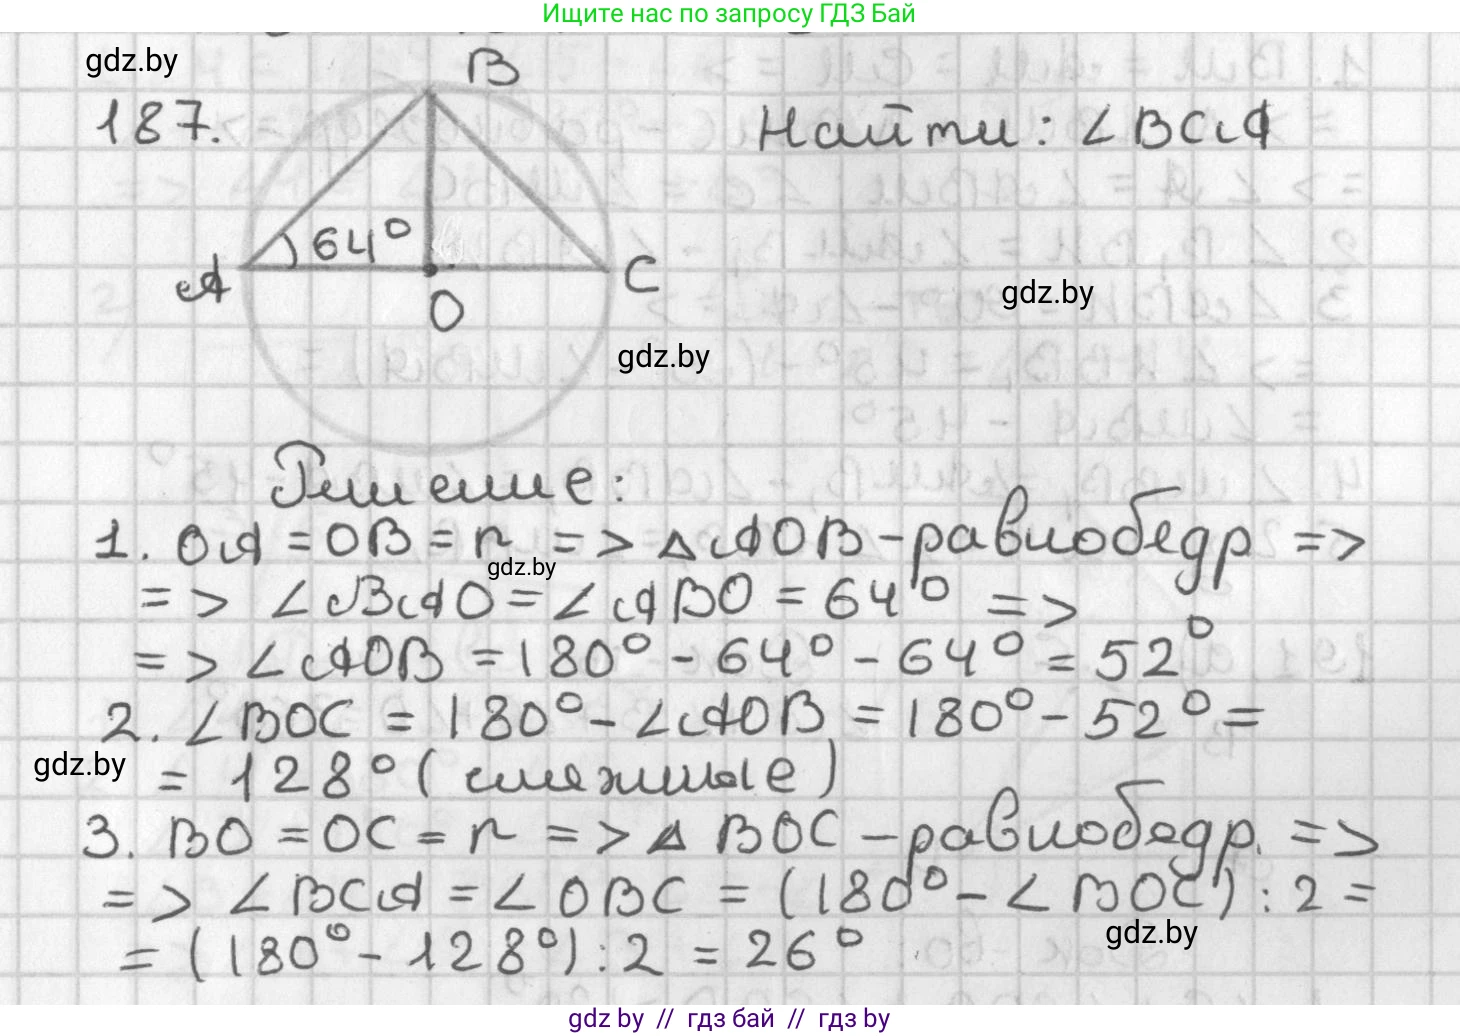 Ищите нас по запросу ГДЗ Бай
gdz.by
187.
B
Найти: ∠BCA
64°
A
C
O
gdz.by
gdz.by
Решение:
1. OA = OB = r => △AOB - равнобедр =>
gdz.by
=> ∠BAO = ∠ABO = 64° =>
=> ∠AOB = 180° - 64° - 64° = 52°
2. ∠BOC = 180° - ∠AOB = 180° - 52° =
gdz.by
= 128° (смежные)
3. BO = OC = r => △ BOC - равнобедр. =>
=> ∠BCA = ∠OBC = (180° - ∠BOC) : 2 =
gdz.by
= (180° - 128°) : 2 = 26°
gdz.by // гдз бай // гдз by